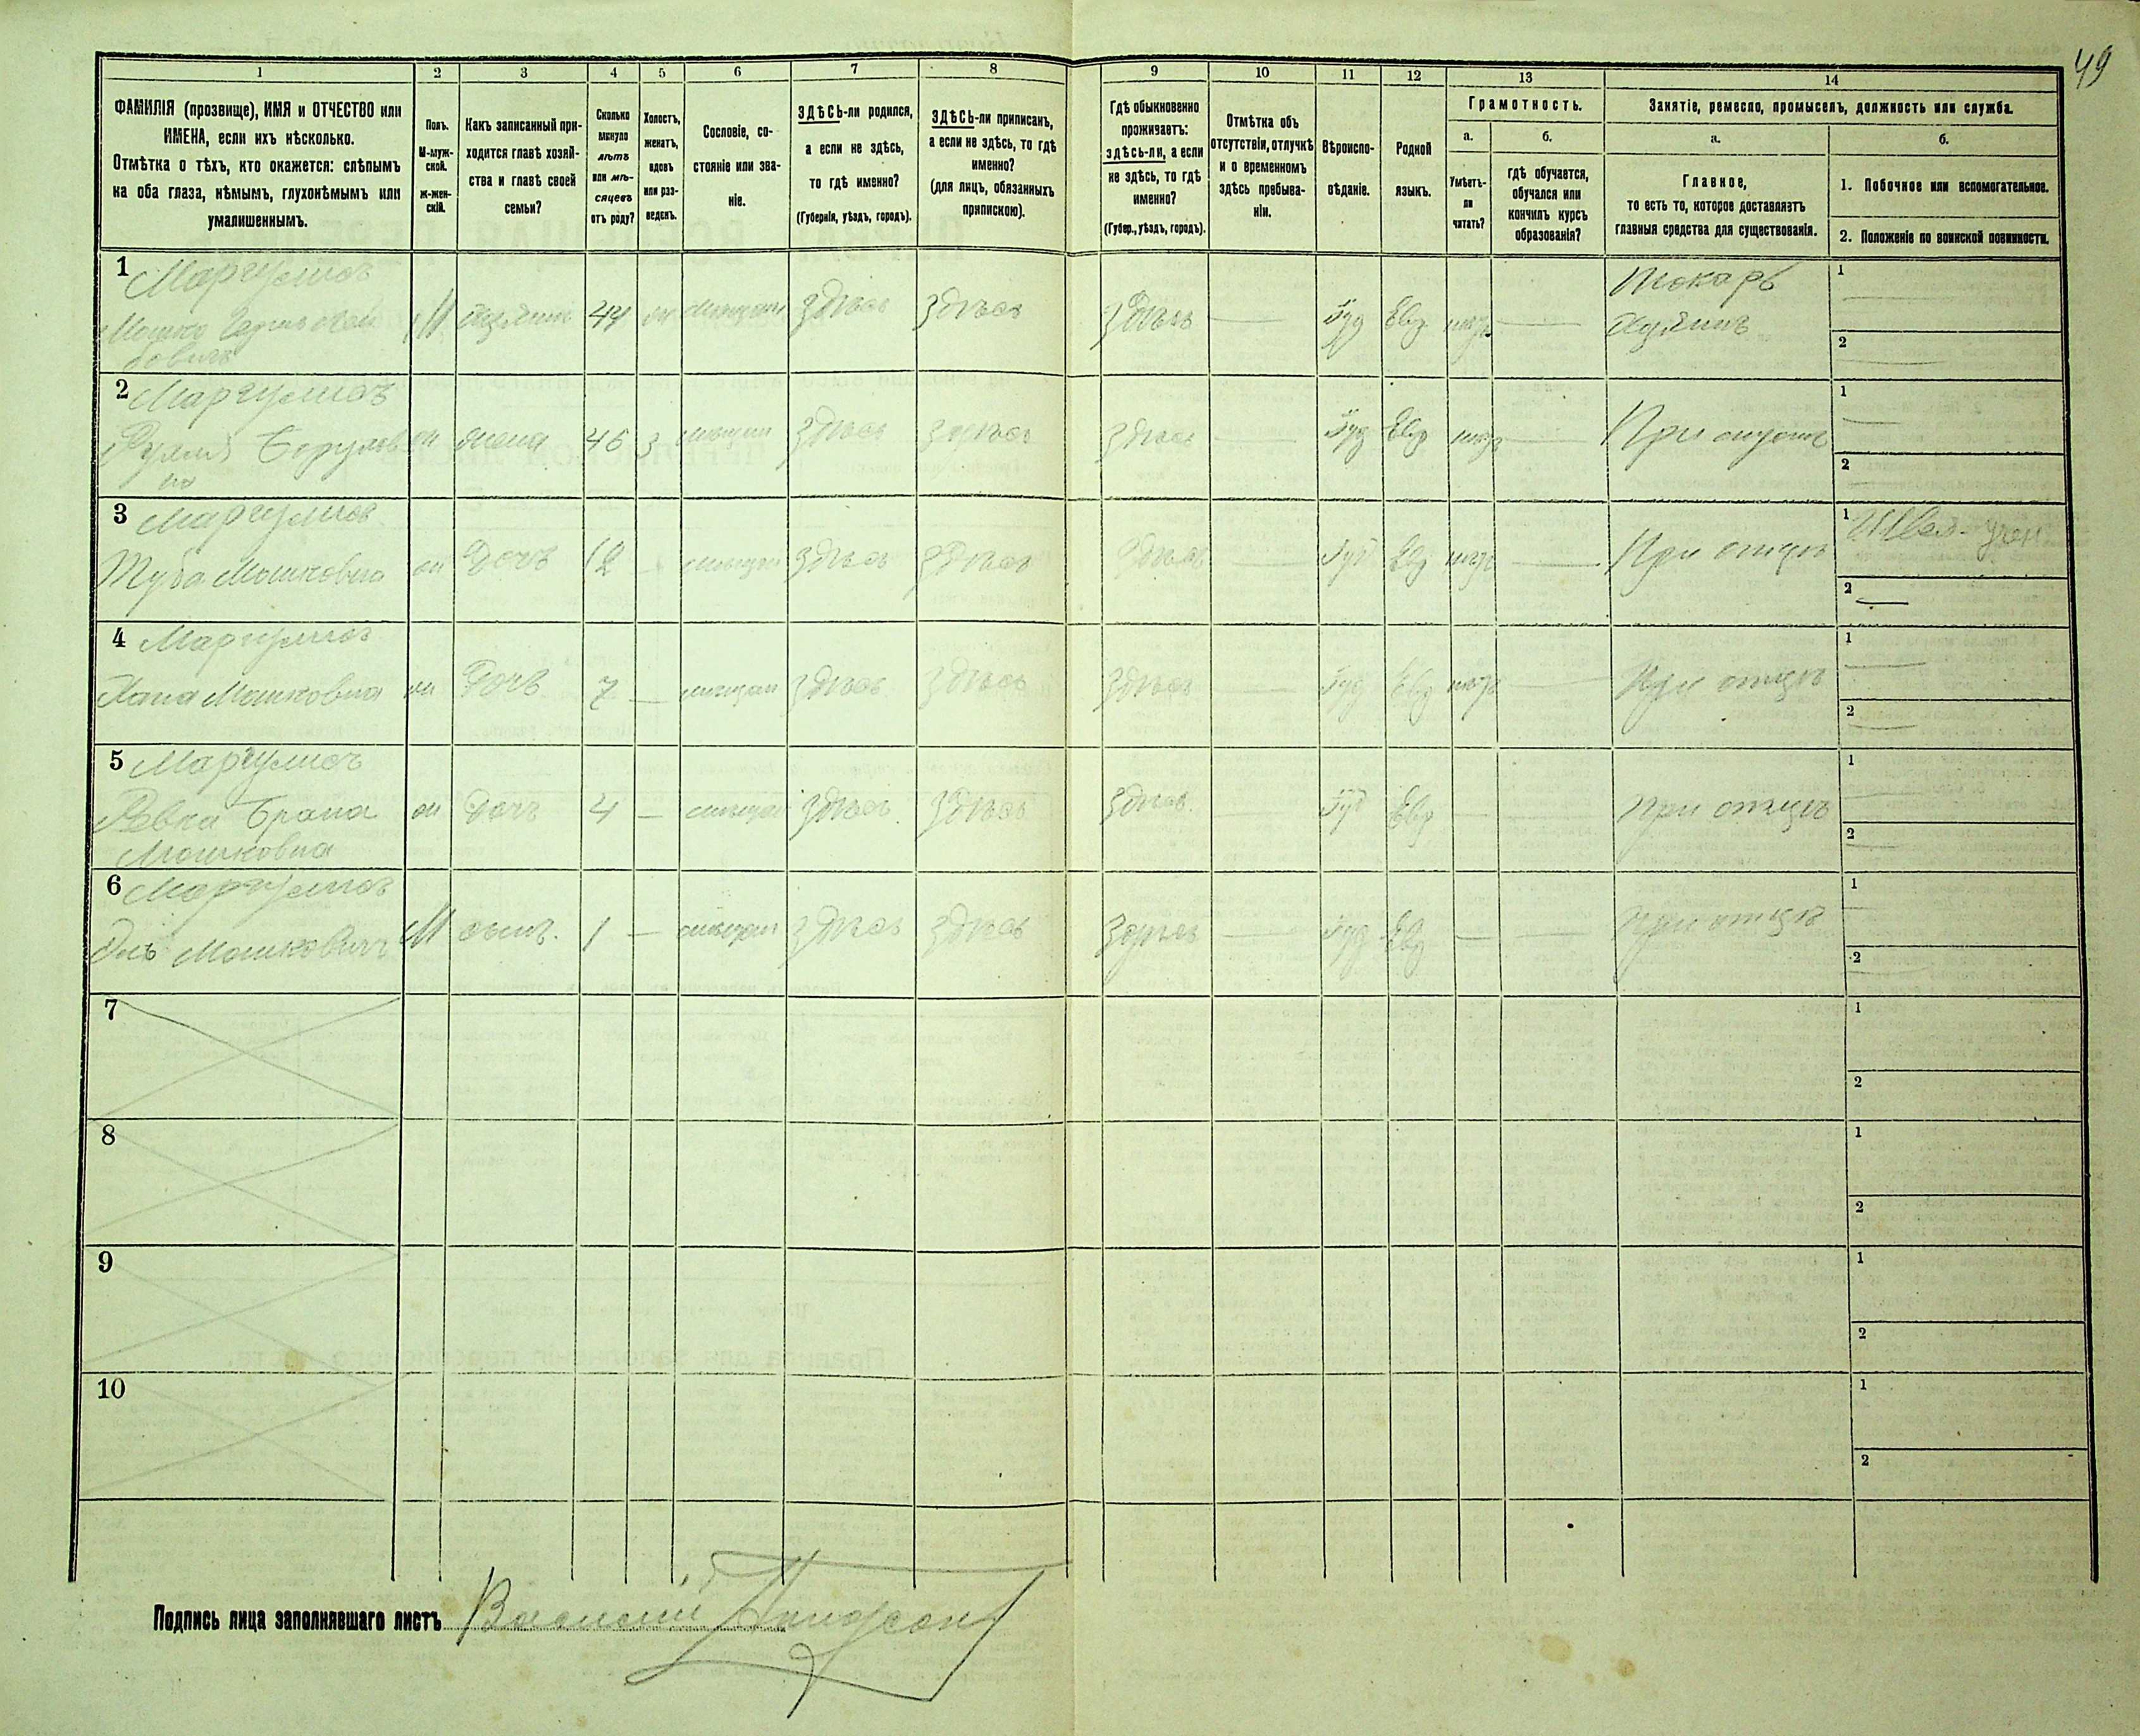 49
1 2 3 4 5 6 7 8 9 10 11 12 13 14
ФАМИЛІЯ (прозвище), ИМЯ и ОТЧЕСТВО или
ИМЕНА, если ихъ нѣсколько.
Отмѣтка о тѣхъ, кто окажется: слѣпымъ
на оба глаза, нѣмымъ, глухонѣмымъ или
умалишеннымъ.
Полъ.
М-муж-
ской.
ж-жен-
скій.
Какъ записанный при-
ходится главѣ хозяй-
ства и главѣ своей
семьи?
Сколько
минуло
лѣтъ
или мѣ-
сяцевъ
отъ роду?
Холостъ,
женатъ,
вдовъ
или раз-
веденъ.
Сословіе, со-
стояніе или зва-
ніе.
ЗДѢСЬ-ли родился,
а если не здѣсь,
то гдѣ именно?
(Губернія, уѣздъ, городъ).
ЗДѢСЬ-ли приписанъ,
а если не здѣсь, то гдѣ
именно?
(для лицъ, обязанныхъ
припискою).
Гдѣ обыкновенно
проживаетъ:
здѣсь-ли, а если
не здѣсь, то гдѣ
именно?
(Губер., уѣздъ, городъ).
Отмѣтка объ
отсутствіи, отлучкѣ
и о временномъ
здѣсь пребыва-
ніи.
Вѣроиспо-
вѣданіе.
Родной
языкъ.
Грамотность.
а.
Умѣетъ-
ли
читать?
б.
гдѣ обучается,
обучался или
кончилъ курсъ
образованія?
Занятіе, ремесло, промыселъ, должность или служба.
а.
Главное,
то есть то, которое доставляетъ
главныя средства для существованія.
б.
1. Побочное или вспомогательное.
2. Положеніе по воинской повинности.
1 Маргулисъ
Мошко
М 44 здѣсь здѣсь здѣсь Іуд Евр
Токарь
1
2
2 Маргулисъ
жена 46 з здѣсь здѣсь здѣсь Іуд Евр При
1
2
3 Маргулисъ
Туба Мошковна
Дочь 12 здѣсь здѣсь здѣсь Іуд Евр При отцѣ
1 Швея
2
4 Маргулисъ
Хана Мошковна
Дочь 7 — здѣсь здѣсь здѣсь Іуд Евр При отцѣ
1
2
5 Маргулисъ
Ревка Брана
Мошковна
Дочь 4 — здѣсь здѣсь здѣсь Іуд Евр При отцѣ
1
2
6 Маргулисъ
Мошковичъ
М сынъ. 1 — здѣсь здѣсь здѣсь Іуд Евр При отцѣ
1
2
7
1
2
8
1
2
9
1
2
10
1
2
Подпись лица заполнявшаго листъ Василій